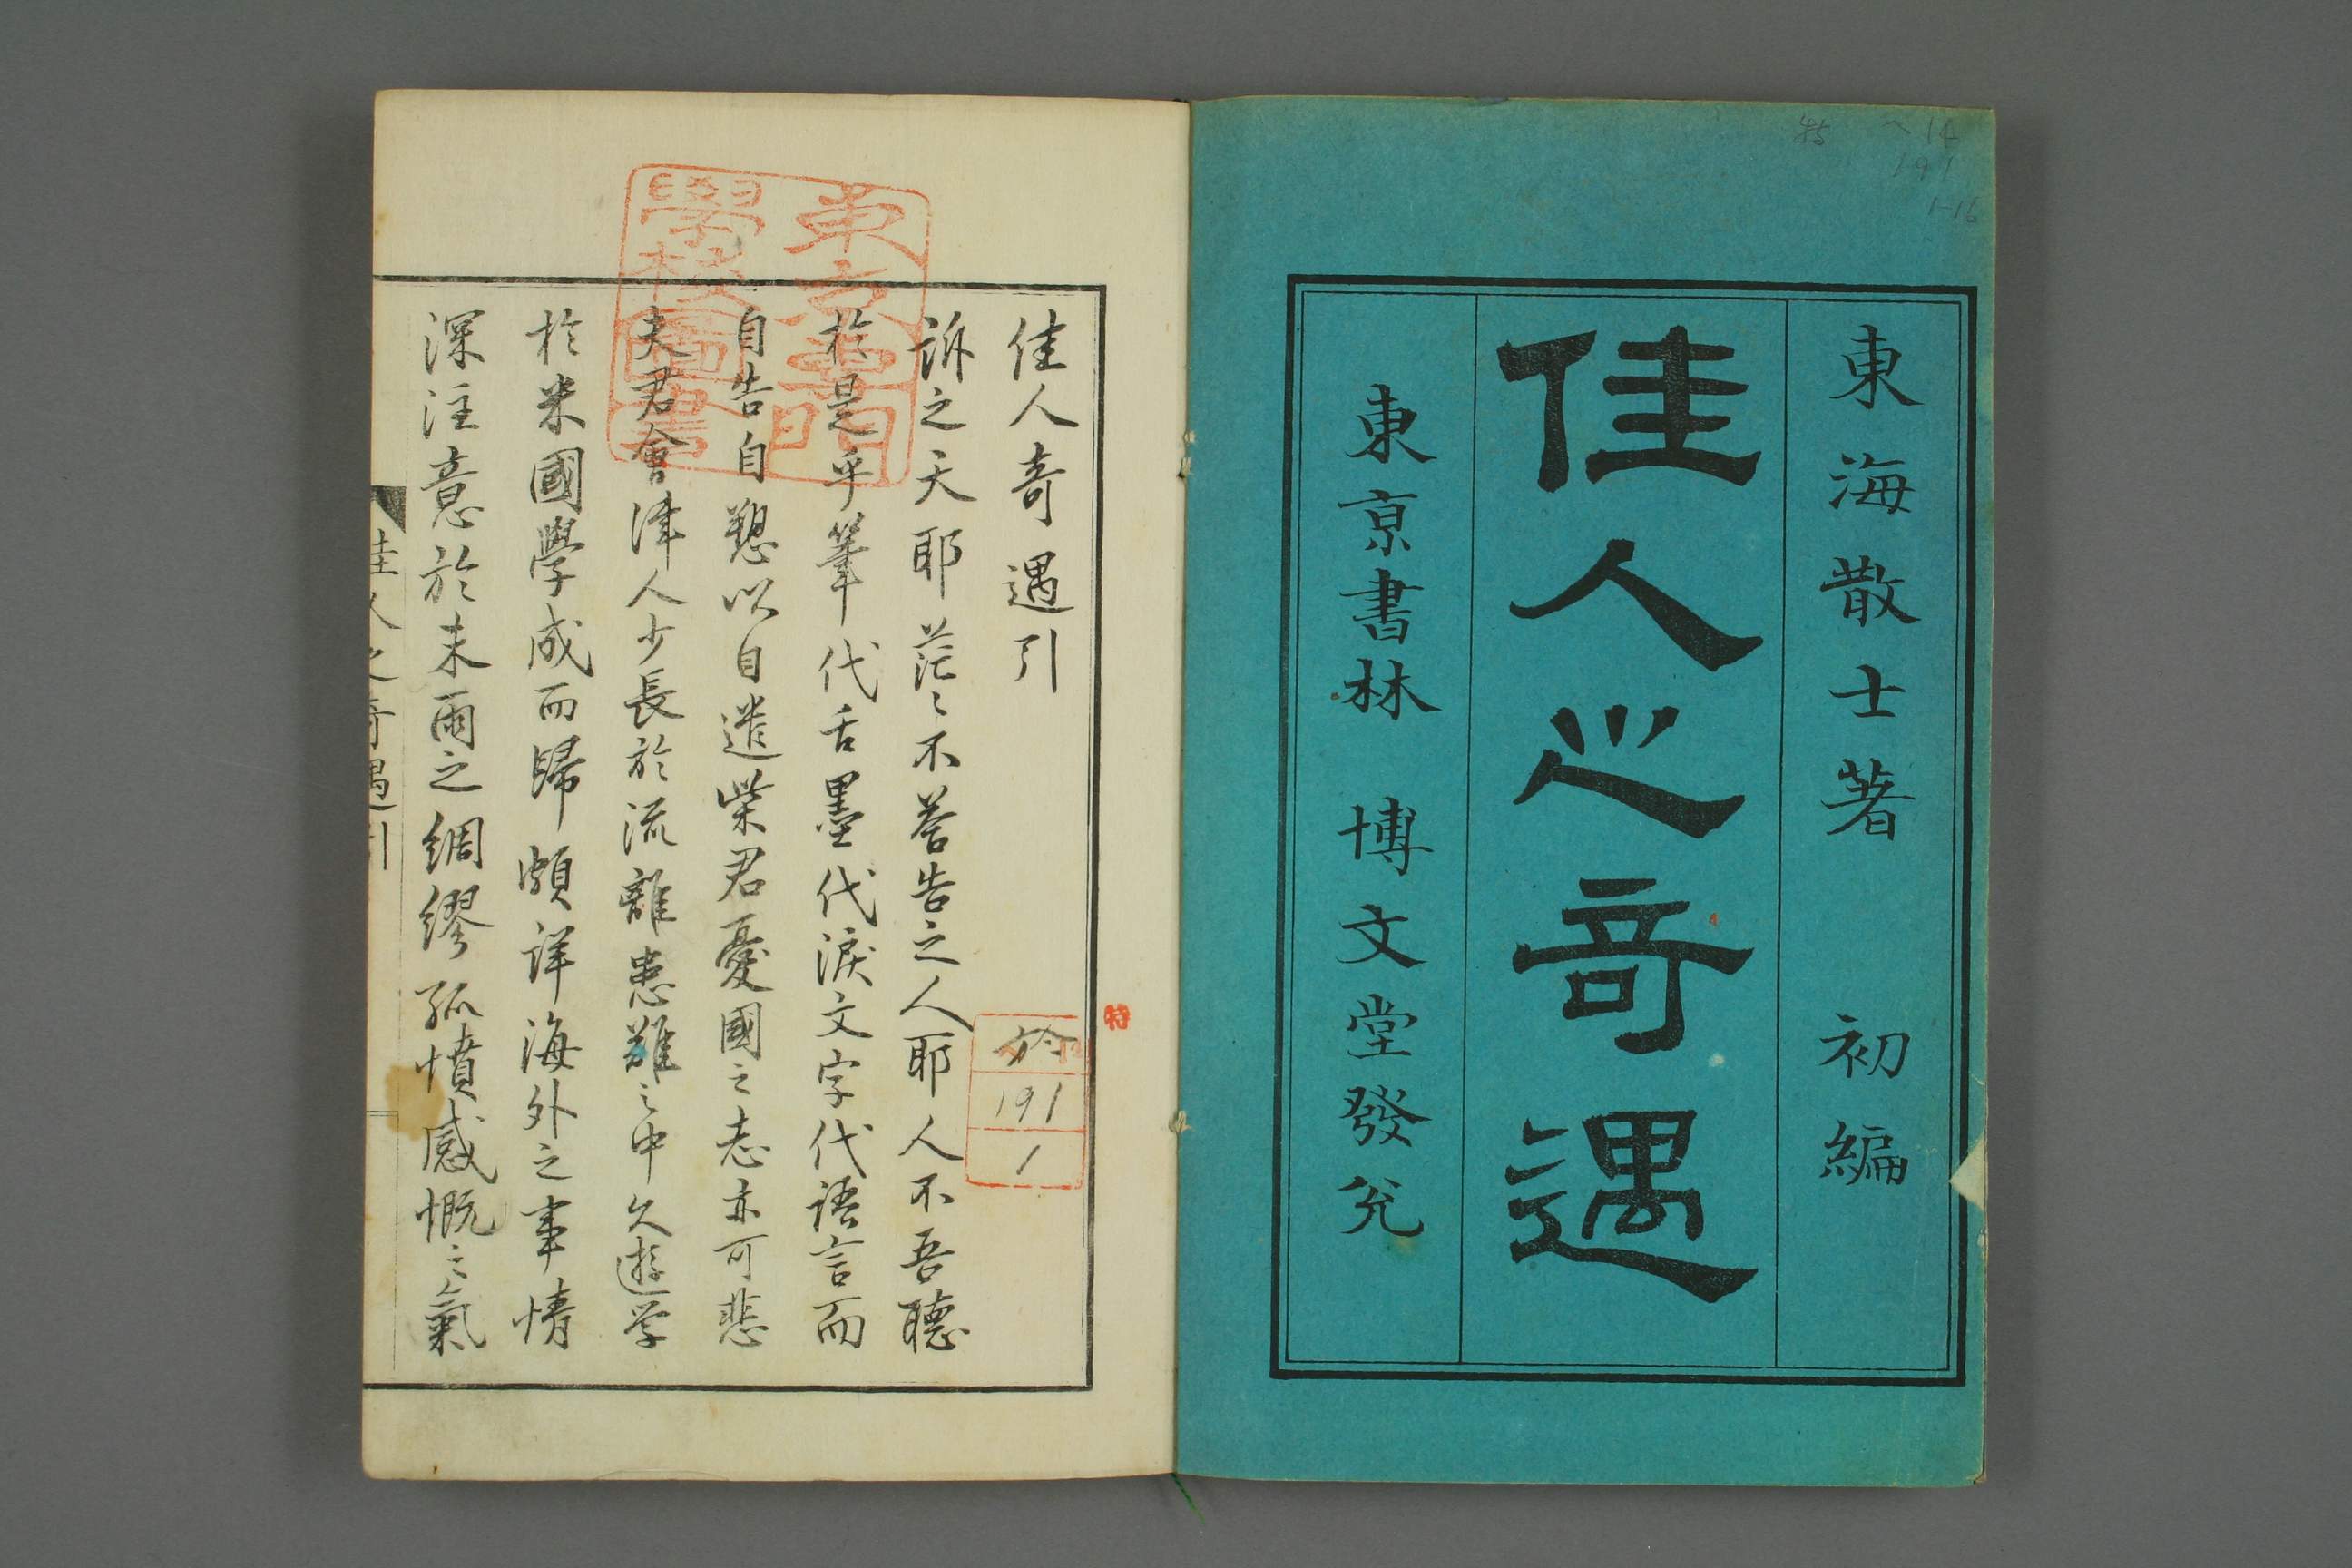 東海散士著 初編
佳人之奇遇
東京書林 博文堂發兌
佳人奇遇引
訴之天耶茫々不答告之人耶人不吾聽
於是乎筆代舌墨代淚文字代語言而
自告自愬以自遣柴君憂國之志亦可悲
夫君會津人少長於流離患難之中久遊学
於米國學成而歸頗詳海外之事情
深注意於未雨之綢繆孤憤感慨之氣
佳人之奇遇引
東京專門
學校圖書
特
191
1
191
1-16